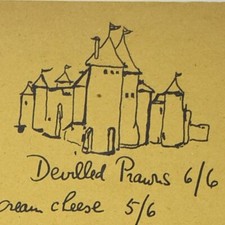 Devilled Prawns 6/6
cream cheese 5/6